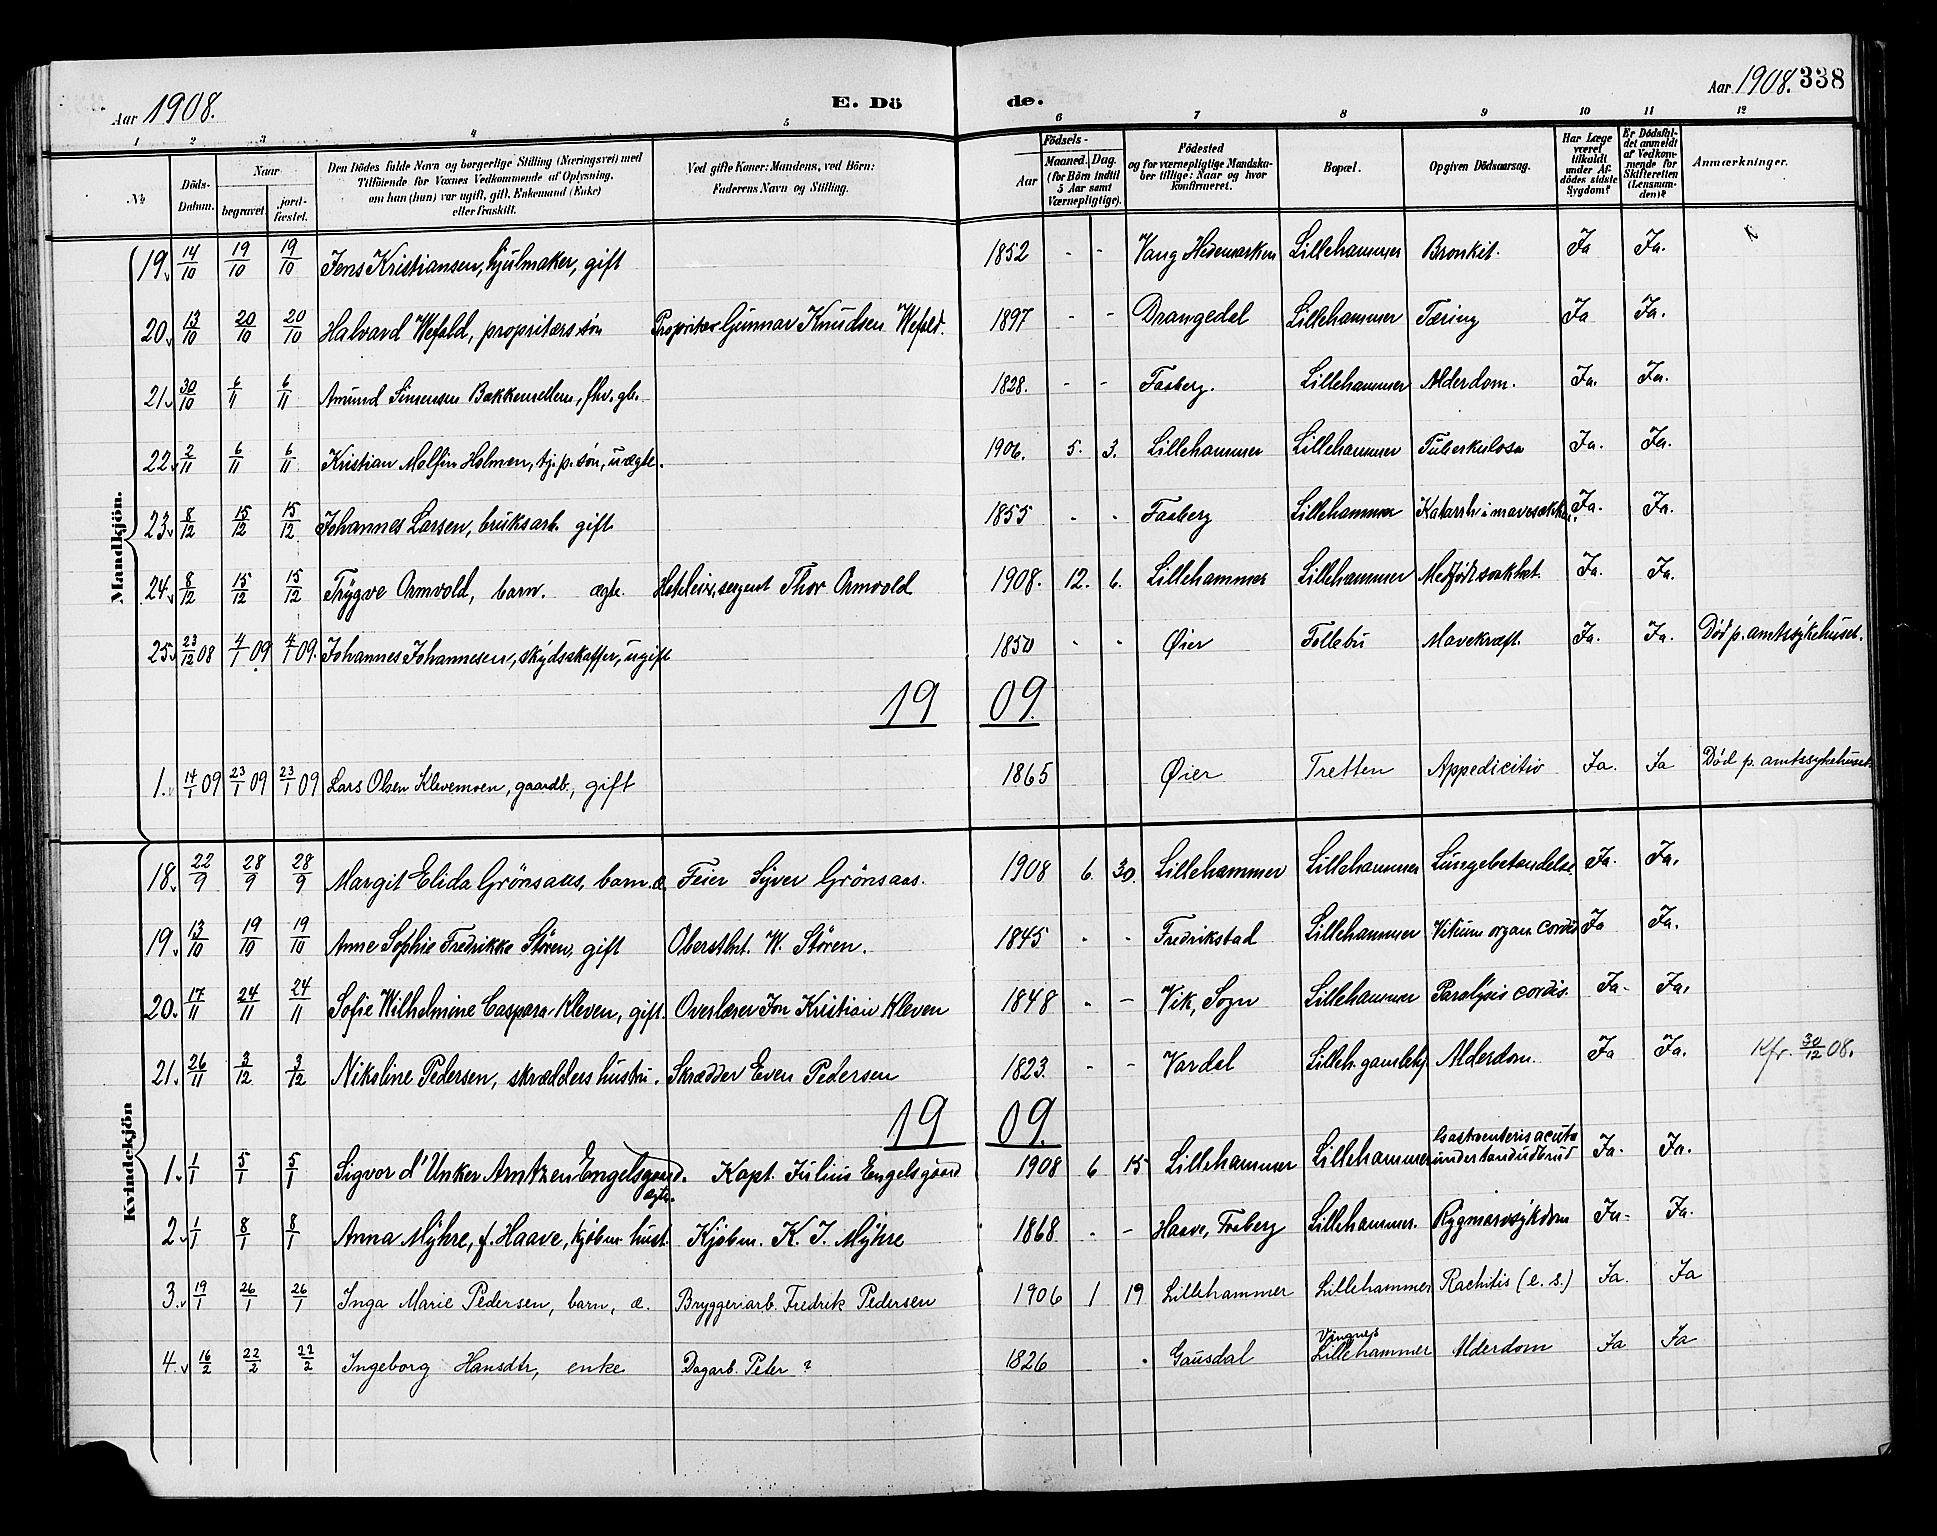 Aar 1908.
E. Dö de.
Aar 1908. 338
1 2 3 4 5 6 7 8 9 10 11 12
№
Döds-Datum.
Naar
begravet.
jordfæstet.
Den Dödes fulde Navn og borgerlige Stilling (Næringsvei) med Tilföiende for Voxnes Vedkommende af Oplysning, om han (hun) var ugift, gift, Enkemand (Enke) eller fraskilt.
Ved gifte Koner: Mandens, ved Börn: Faderens Navn og Stilling.
Födsels-
Aar
Maaned. Dag. (for Börn indtil 5 Aar samt Værnepligtige).
Födested og for værnepligtige Mandskaber tillige: Naar og hvor konfirmeret.
Bopæl.
Opgiven Dödsaarsag.
Har Læge været tilkaldt under Afdödes sidste Sygdom?
Er Dödsfaldet anmeldt af Vedkommende for Skifteretten (Lensmanden)?
Anmærkninger.
Mandkjön.
19 14/10 19/10 19/10 Jens Kristiansen, hjulmaker, gift 1852 - - Vang Hedemarken Lillehammer Bronkit. Ja Ja.
20 13/10 20/10 20/10 Halvard Wefald, propritærs søn Propritær Gunnar Knudsen Wefald. 1897 - - Drangedal Lillehammer Tæring Ja Ja.
21 30/10 6/11 6/11 Amund Simensen Bakkemellem, fhv. gb. 1828. - - Faaberg. Lillehammer Alderdom. Ja. Ja.
22 2/11 6/11 6/11 Kristian Malfin Holmen, tj. p. søn, uægte. 1906. 5. 3. Lillehammer Lillehammer Tuberkulose Ja. Ja.
23 8/12 15/12 15/12 Johannes Larsen, bruksarb. gift 1855 - - Faaberg Lillehammer Katarrh i mavesækken. Ja. Ja.
24 8/12 15/12 15/12 Trygve Ormvold, barn. ægte. sergent Thor Ormvold 1908. 12. 6. Lillehammer Lillehammer Medfødt svakhet. Ja. Ja.
25 23/12 08 4/1 09 4/1 09. Johannes Johannesen, skydsskaffer, ugift 1850 - - Øier Follebu Mavekræft. Ja. Ja. Død p. amtssykehuset.
19 09.
1. 14/1 09 23/1 09 23/1 09 Lars Olsen Klevemoen, gaardb., gift 1865 Øier Tretten Appedicitis Ja. Ja Død p. amtssykehuset
Kvindekjön
18 22/9 28/9 28/9 Margit Elida Grönsaas, barn æ. Feier Syver Grönsaas. 1908 6. 30. Lillehammer Lillehammer Lungebetændelse. Ja. Ja.
19 13/10 19/10 19/10 Anne Sophie Fredrikke Stören, gift Oberstlnt. W. Stören. 1845 - - Fredrikstad Lillehammer Vitium organ. cordis Ja Ja.
20. 17/11 24/11 24/11 Sofie Wilhelmine Caspara Kleven, gift. Overlærer Jon Kristian Kleven 1848 - - Vik, Sogn Lillehammer Paralysis cordis. Ja. Ja.
21. 26/11 3/12 3/12 Nikoline Pedersen, skrædders hustru. Skrædder Even Pedersen 1823. - - Vardal Lilleh. gamlehj. Alderdom. Ja Ja. Kfr. 30/12 08.
19 09.
1. 1/1 5/1 5/1 Sigvor d'Unker Arntzen Engelsgaard. ægte. Kapt. Julius Engelsgaard 1908 6 15 Lillehammer Lillehammer Gastroenteris acuta under tandudbrud Ja. Ja.
2 1/1 8/1 8/1 Anna Myhre, f. Haave, kjøbm. hust. Kjøbm. K. J. Myhre 1868 - - Haave, Faaberg Lillehammer. Rygmarvssykdom Ja. Ja.
3. 19/1 26/1 26/1 Inga Marie Pedersen, barn, æ. Bryggeriarb. Fredrik Pedersen 1906 1 19 Lillehammer Lillehammer Rachitis (e. s.) Ja. Ja
4. 16/2 22/2 22/2 Ingeborg Hansdtr, enke Dagarb. Peter ? 1826 Gausdal Vingnes Lillehammer Alderdom Ja Ja